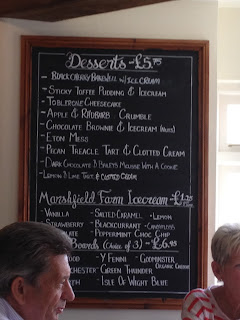 Desserts - £5.75
- Black Cherry Bakewell w/ Ice Cream
- Sticky Toffee Pudding & Icecream
- Toblerone Cheesecake
- Apple & Rhubarb Crumble
- Chocolate Brownie & Icecream
- Eton Mess
- Pecan Treacle Tart & Clotted Cream
- Dark Chocolate & Baileys Mousse With A Cookie
- Lemon & Lime Tart & Clotted Cream
Marshfield Farm Icecream - £1.75
- Vanilla - Salted Caramel - Lemon
- Strawberry - Blackcurrant
- Peppermint Choc Chip
Boards (Choice of 3) - £6.95
- Y Fenni - Godminster
Organic Cheese
- Green Thunder
- Isle Of Wight Blue